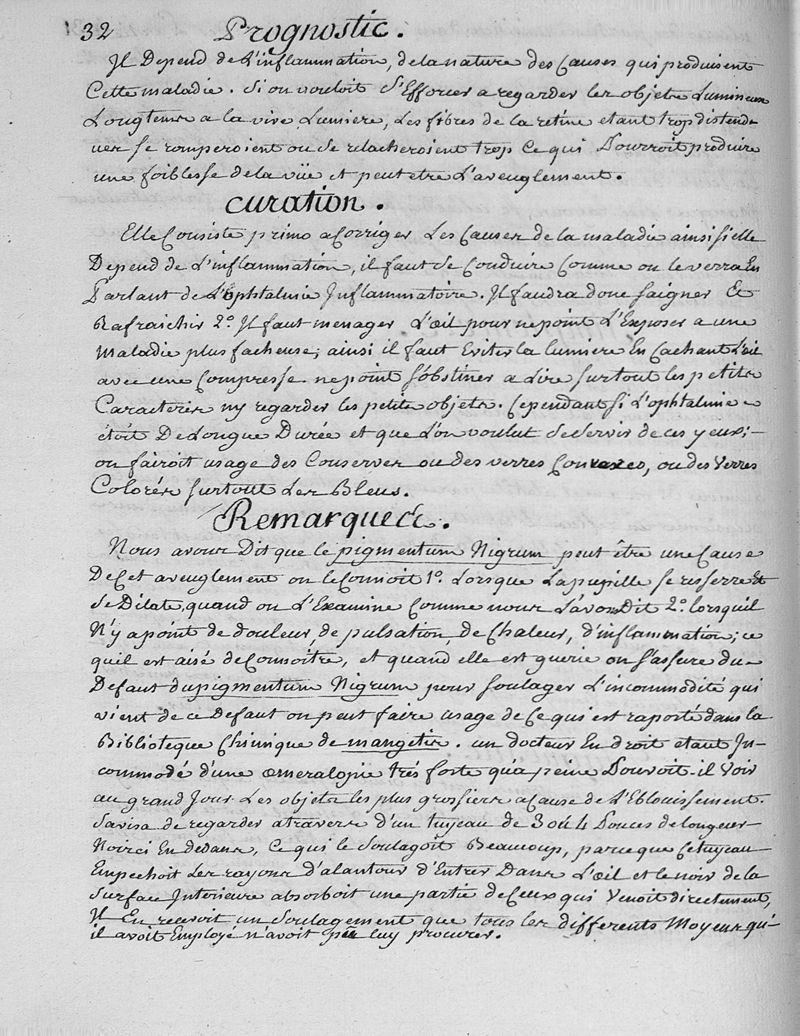 32 Prognostic.
Il Depend de L'inflammation, de la nature des Causes qui produisent
Cette maladie. Si on vouloit S'Efforcer a regarder les objets Lumineux
Longtems a la vive Lumiere, Les fibres de la retine etant trop distendu-
ües se romperoient ou se relacheroient trop Ce qui Pourroit produire
une foiblesse de la vüe et peut etre L'aveuglement.
Curation.
Elle Consiste primo a Corriger Les Causes de la maladie ainsi si elle
Depend de L'inflammation, il faut se Conduire Comme on le verra En
Parlant de L'ophtalmie Inflammatoire. Il faudra donc saigner Et
Rafraichir 2.o Il faut menager L'œil pour ne point L'Exposer a une
Maladie plus facheuse; ainsi il faut Eviter la lumiere En Cachant L'œil
avec une Compresse ne point S'obstiner a Lire surtout les petits
Caracteres ny regarder les petits objets. Cependant si L'ophtalmie
étoit De Longue Durée et que L'on voulut se servir de ces yeux;
on fairoit usage des Conserves ou des verres Convexes, ou des Verres
Colorés surtout Les Bleus.
Remarque
Nous avons Dit que le pigmentum Nigrum peut être une Cause
De Cet aveuglement on le Connoit 1.o Lorsque La pupille se resserre Et
se Dilate, quand on L'Examine Comme nous L'avon Dit 2.o lorsquil
N'y a point de douleur, de pulsation de Chaleur, d'inflammation; ce
quil est aisé de Connoitre, et quand elle est guerie on s'assure du
Defaut du pigmentum Nigrum pour soulager L'incommodité qui
vient de ce Defaut on peut faire usage de Ce qui est raporté dans la
Biblioteque Chirurgique de mangetis. un docteur En droit etant In-
commodé d'une œmeralopie très forte qu'a peine Pouvoit-il Voir
au grand Jour Les objets les plus grossiers a Cause de L'Eblouissement.
S'avisa de regarder atravers d'un tuyeau de 3 où 4 Pouces de longeur
Noirci En dedans, Ce qui le Soulagoit Beaucoup, parce que Ce tuyeau
Empechoit Les rayons d'alantour d'Entrer Dans L'œil et le noir de la
Surface Interieure absorboit une partie de Ceux qui Venoit directement,
Il En recevoit un Soulagement que tous les differents Moyens qu'-
il avoit Employé n'avoit pu luy procurer.